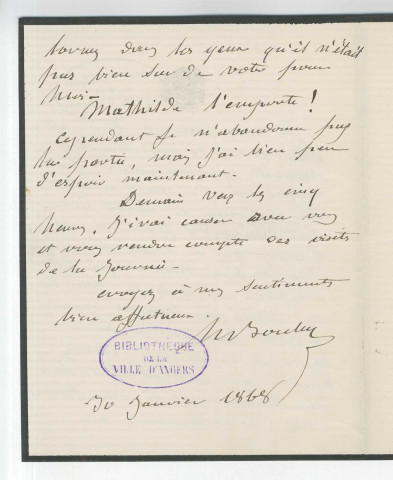 dans les yeux qu'il n'était
pas bien sûr de votre
Mathilde l'emporte !
Cependant je n'abandonne pas
la partie, mais j'ai bien peu
d'espoir maintenant.
Demain vers les cinq
heures, j'irai causer avec vous
et vous rendre compte des visites
de la journée -
croyez à mes sentiments
bien affectueux.
BIBLIOTHÈQUE
DE LA
VILLE D'ANGERS
30 Janvier 1868